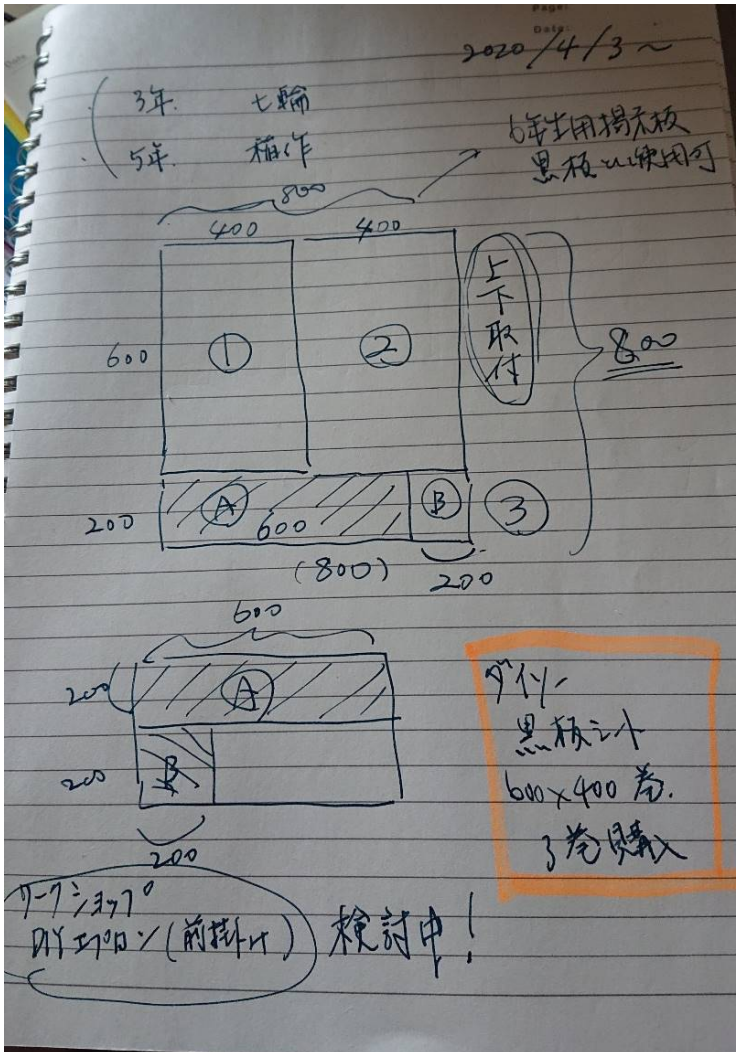 Page:
Date:
2020/4/3~
3年. 七輪
5年. 稲作
6年生用掲示板
黒板に使用可
800
400 400
600
①
②
上下取付
800
200
Ⓐ
600
Ⓑ
③
(800)
200
600
200
Ⓐ
200
B
200
ダイソー
黒板シート
600×400 巻.
3巻購入
ワークショップ
DIYエプロン(前掛け) 検討中!